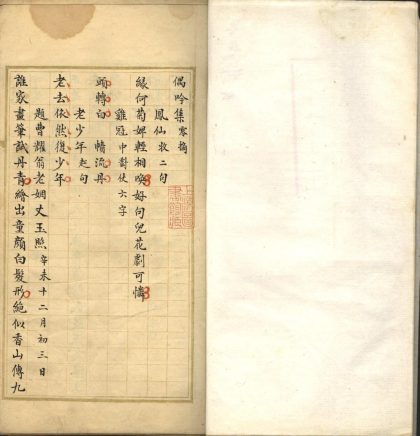 偶吟集零摘
鳳仙救二句
緣何菊婢輕相喚好句兒花劇可憐
雞冠中聯伏六字
頭轉白 幘流丹
老少年起句
老去依然復少年
題曹耀翁老姻丈玉照辛未十二月初三日
誰家畫筆誠丹青繪出童顏白髮形絕似香山傳九